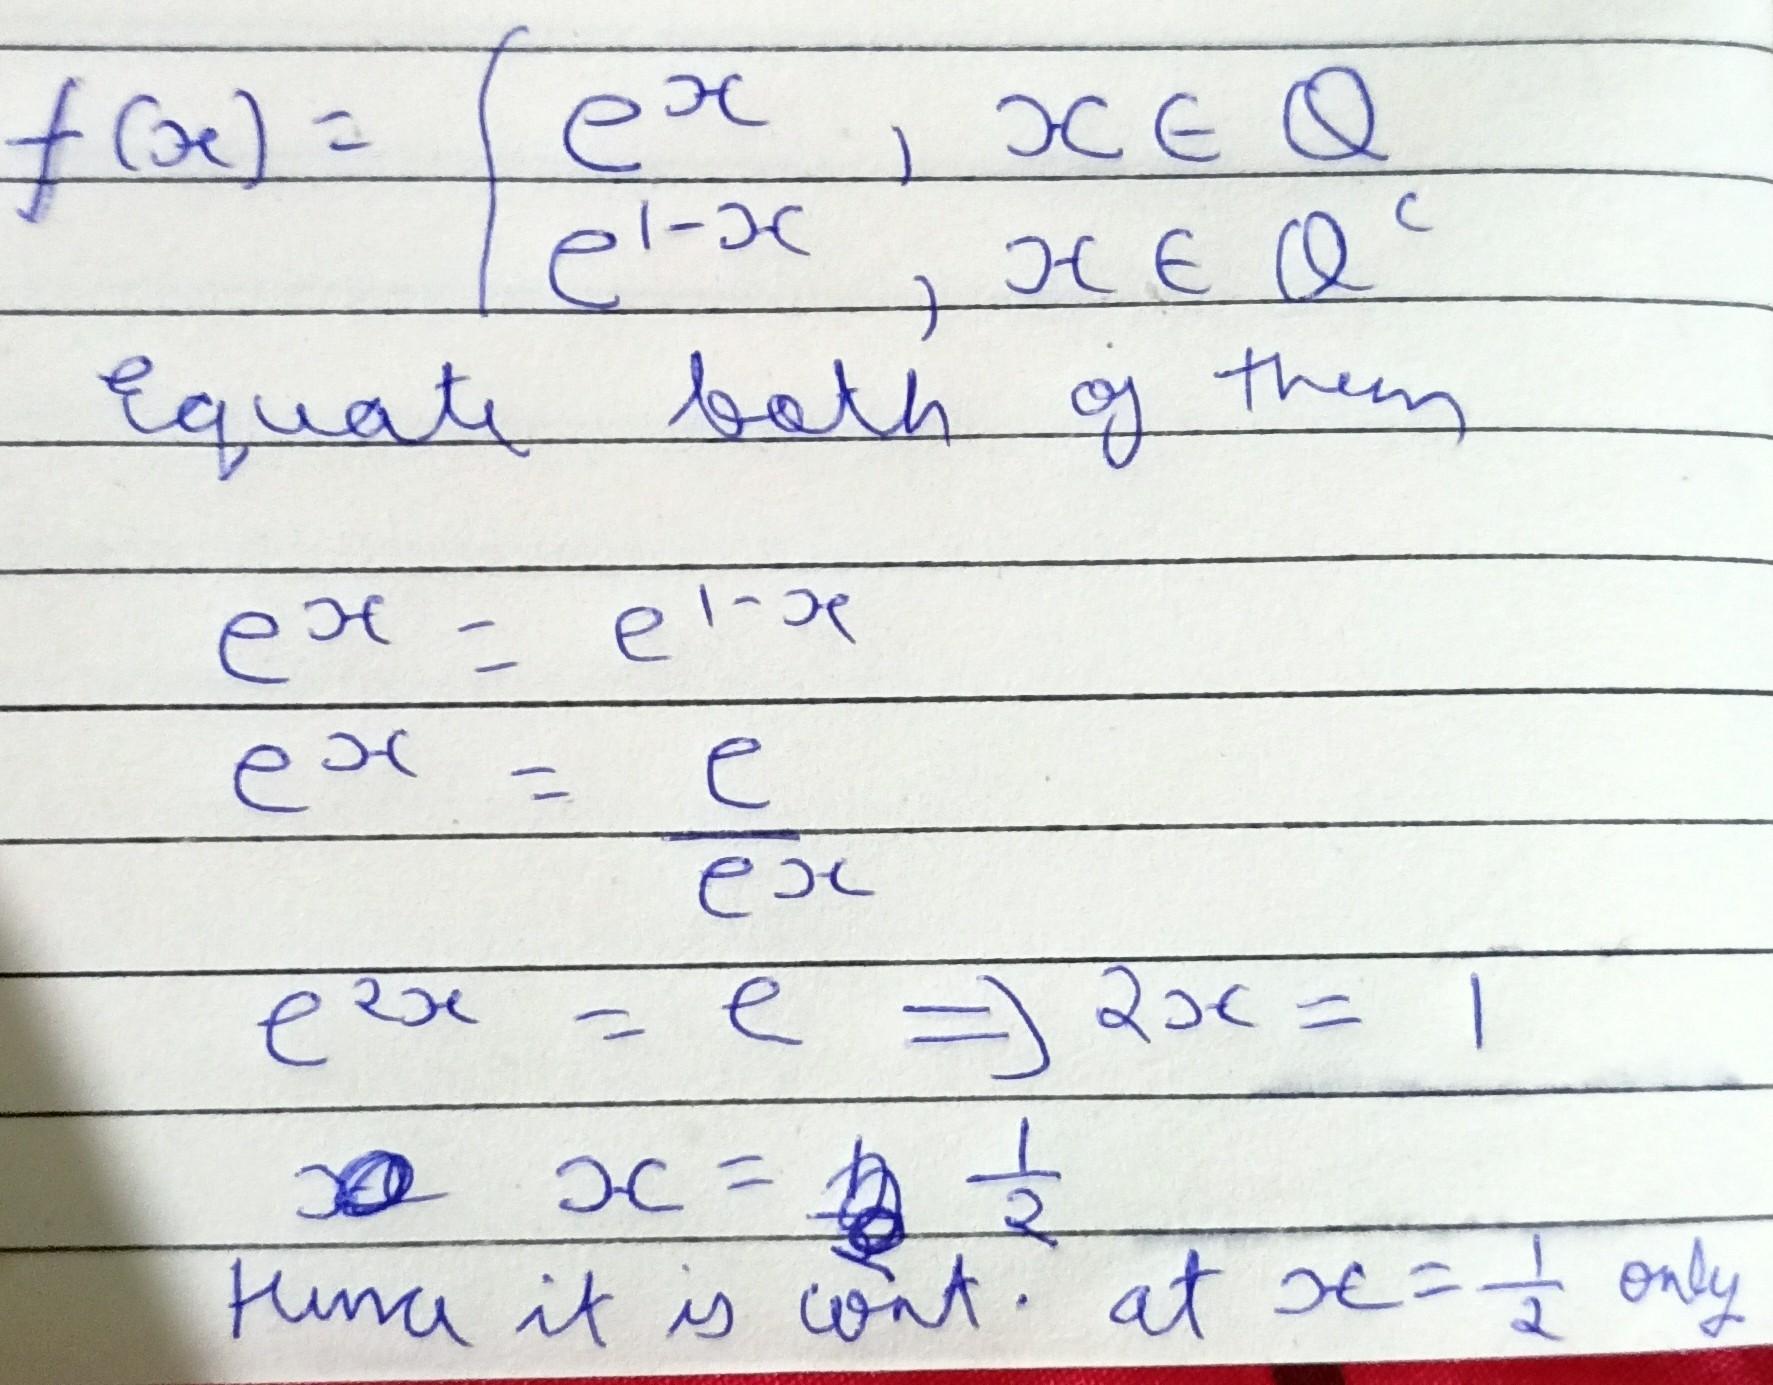 f(x) = { e^x , x ∈ Q
e^{1-x} , x ∈ Q^c
Equate both of them
e^x = e^{1-x}
e^x = e/e^x
e^{2x} = e ⇒ 2x = 1
x = 1/2
Hence it is cont. at x = 1/2 only